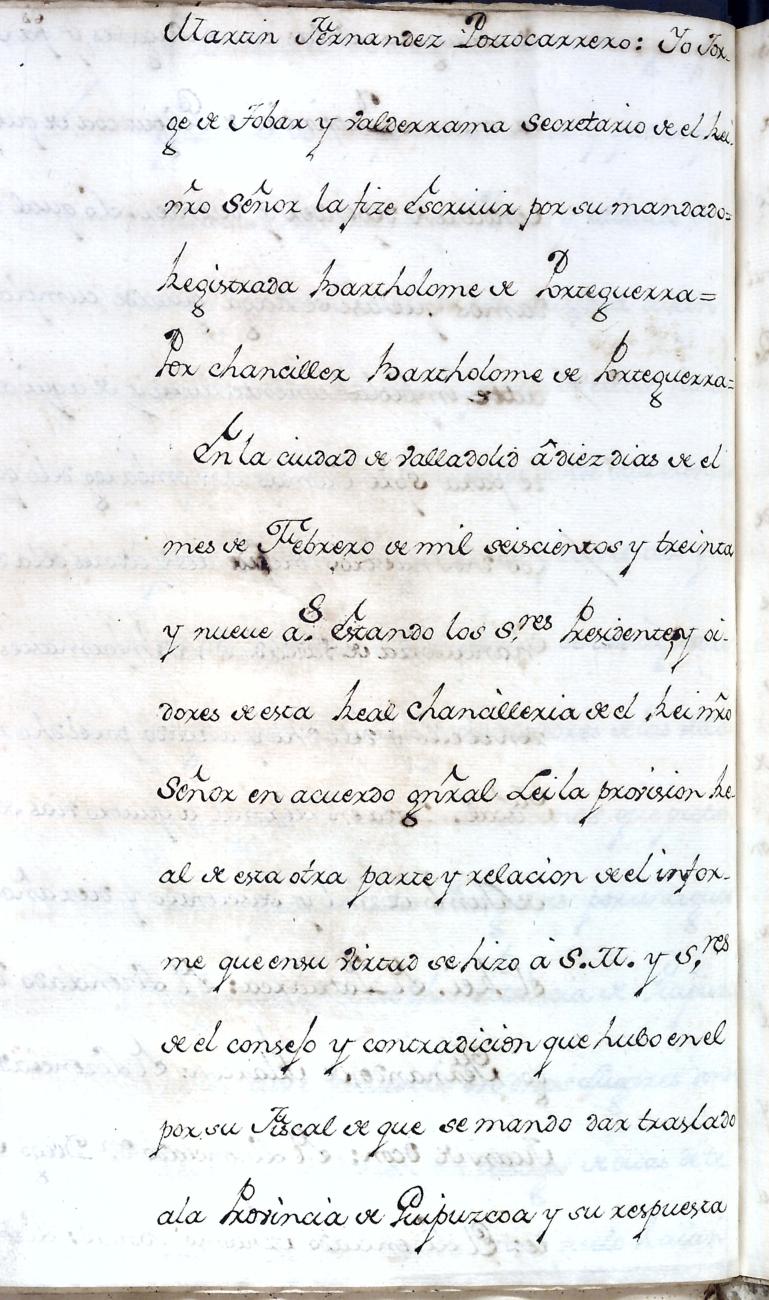 Martin Fernandez Portocarrero: Yo Jor-
ge de Tobar y Valderrama Secretario de el Rei
nr̃o Señor la fize Escriuir por su mandado=
Registrada Bartholome de Porteguerra=
Por chanciller Bartholome de Porteguerra=
En la ciudad de Valladolid â diez dias de el
mes de Febrero de mil seiscientos y treinta
y nueve a.s Estando los S.res Presidente, y oi-
dores de esta Real Chancilleria de el Rei nr̃o
Señor en acuerdo gñral Lei la provision Re-
al de esta otra parte y relacion de el infor-
me que en su virtud se hizo à S.M. y S.res
de el consejo y contradicion que hubo en el
por su Fiscal de que se mando dar traslado
a la Provincia de Guipuzcoa y su respuesta